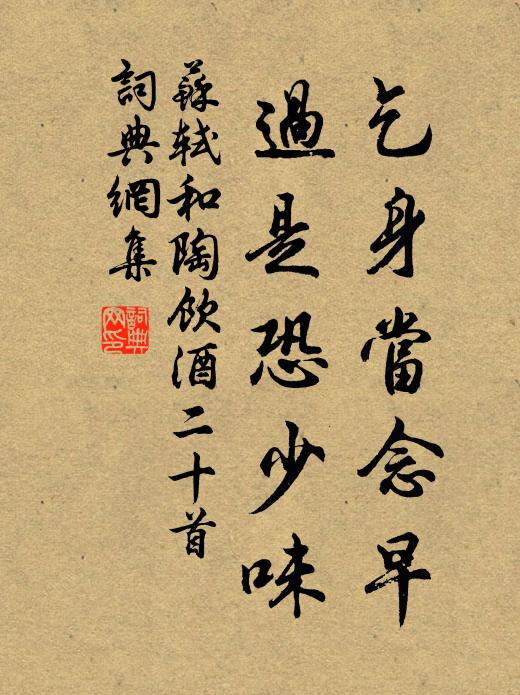 乞身當念早
過是恐少味
蘇軾和陶飲酒二十首
詞典網集
詞典網印